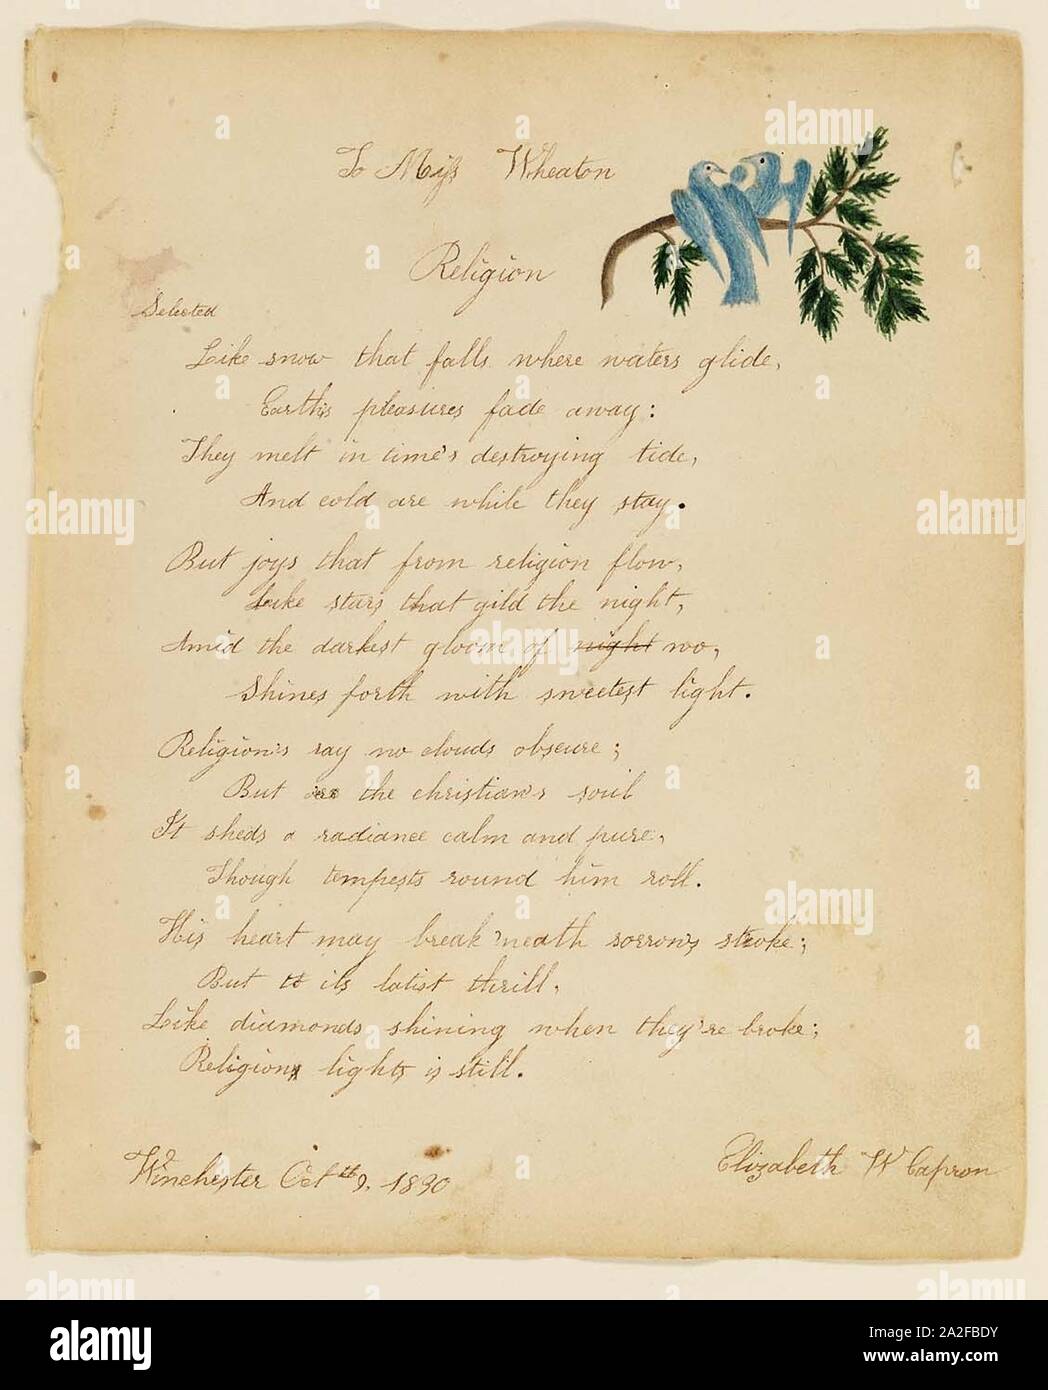 To Miss Wheaton
Religion
Selected
Like snow that falls where waters glide,
Earth's pleasures fade away:
They melt in time's destroying tide,
And cold are while they stay.
But joys that from religion flow,
Like stars that gild the night,
Amid the darkest gloom of night wo,
Shines forth with sweetest light.
Religion's ray no clouds obscure;
But the christian's soul
It sheds a radiance calm and pure,
Though tempests round him roll.
His heart may break 'neath sorrows stroke;
But to its latist thrill,
Like diamonds shining when they're broke;
Religions lights is still.
Winchester Oct th 9. 1830
Elizabeth W Capron
alamy
Image ID: A2FBDY
www.alamy.com